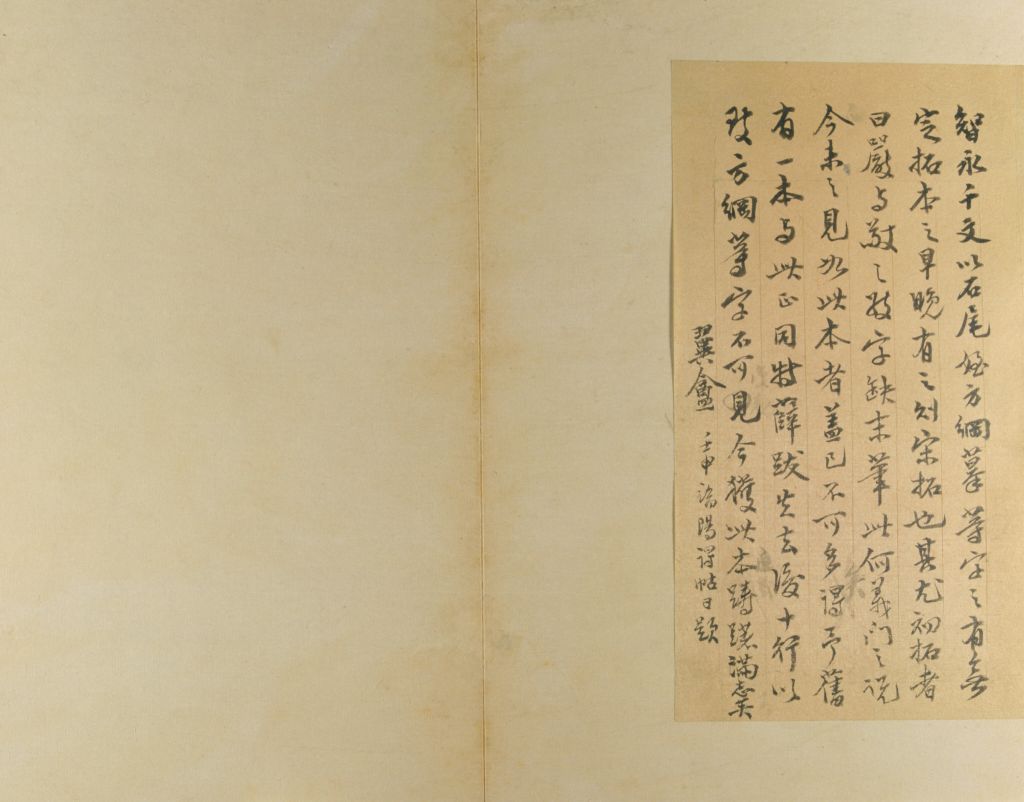 智永千文以石尾姪方綱摹等字之有無
定拓本之早晚有之則宋拓也其尤初拓者
曰嚴与敬之敬字缺末筆此何義門之說
今未之見如此本者蓋已不可多得予舊
有一本与此正同特薛跋失去後十行以
致方綱等字不可見今獲此本躊躇滿志矣
翼盦 壬申 陽得帖日題